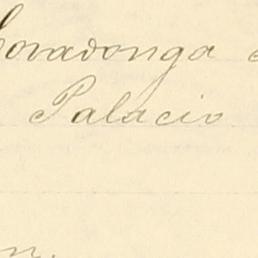 Covadonga
Palacio
n.